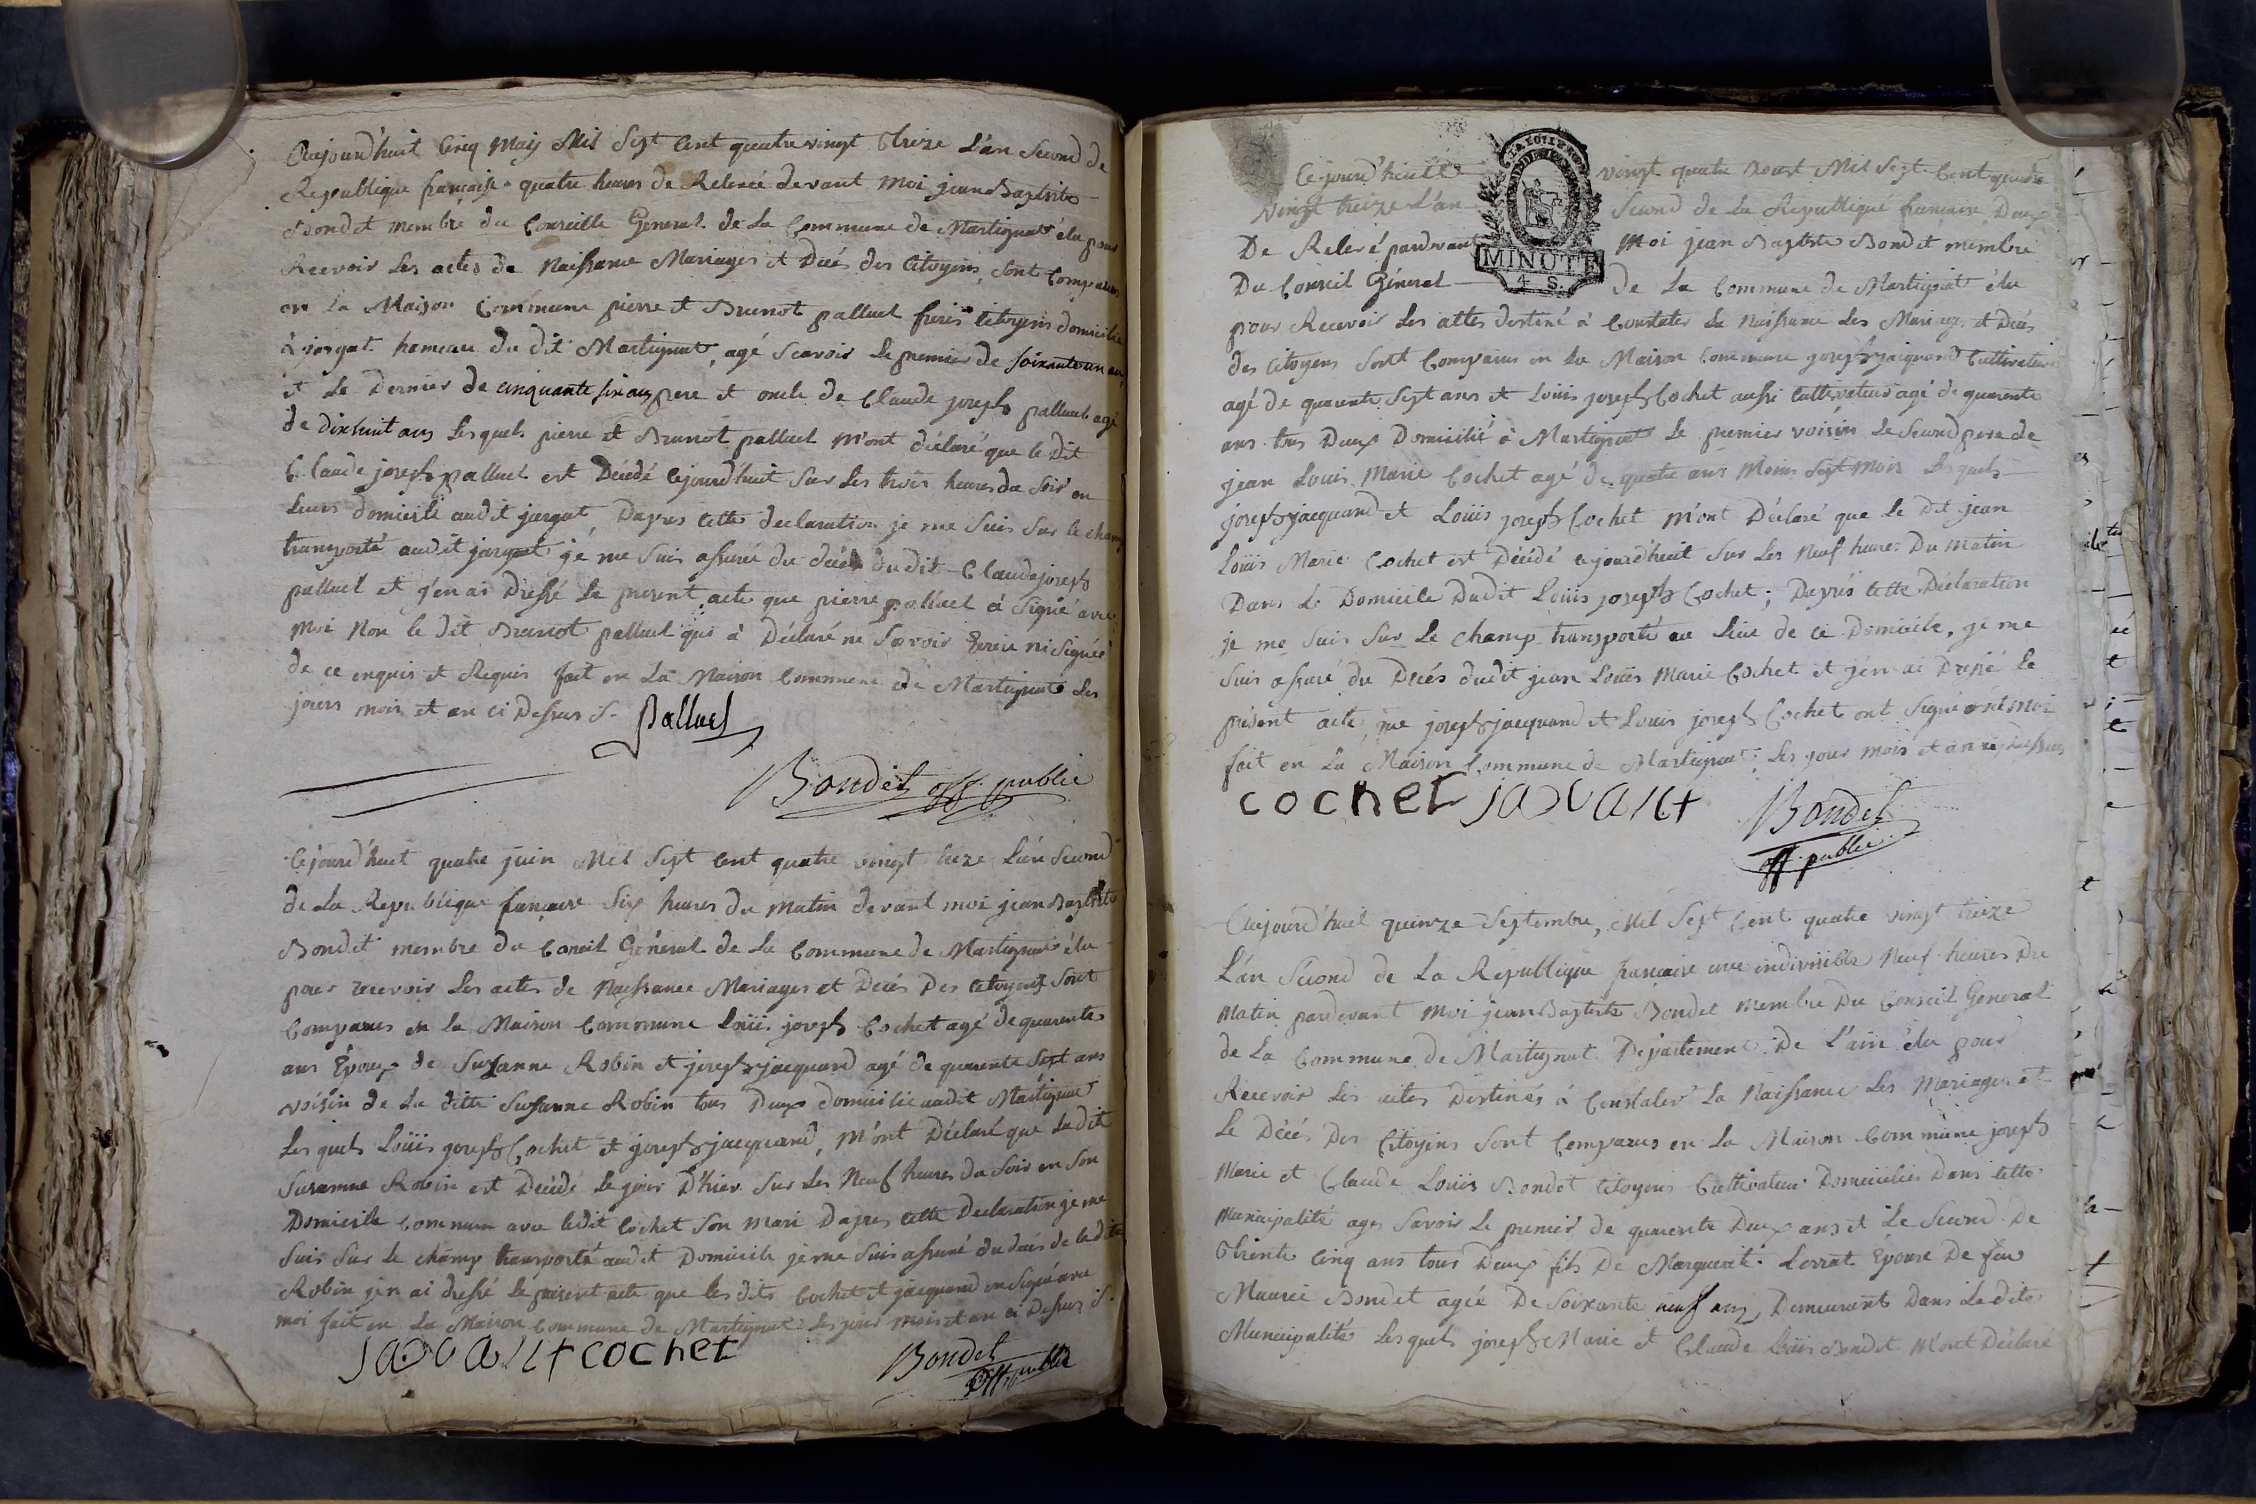 Aujourd'huit Cinq May Mil Sept Cent quatre vingt Treize L'an Second de
Republique francaise quatre heures de Relevée devant Moi jean Baptiste
Bondet membre du Conseille General de La Commune de Martignat élu pour
Recevoir Les actes de Naissance Mariages et Décés des Citoyens, sont Comparus
en La Maison Commune pierre et Brunot palluel freres Citoyens domicilié
à jargat hameau du dit Martignat, agé Scavoir Le premier de Soixante un ans
et Le Dernier de cinquante six ans pere et oncle de Claude joseph palluel agé
de dixhuit ans Lesquels pierre et Brunot palluel M'ont déclaré que le Dit
Claude joseph palluel est Décédé Cejourd'huit Sur Les trois heures du Soir en
Leurs domicile audit jargat, Dapres cette declaration je me Suis Sur le champ
transporté audit jargat jé me Suis assuré du décés dudit Claude joseph
palluel et j'en ai Dressé Le present acte que pierre palluel à Signé avec
Moi Non le dit Brunot palluel qui à Déclaré ne Scavoir Ecrire ni Signée
de ce enquis et Requis fait en La Maison Commune de Martignat Les
jours mois et an ci Dessus
Palluel
Bondet off public
Cejourd'huit quatre juin Mil Sept Cent quatre vingt treze L'an Second
de La Republique francaise Six heures du Matin devant moi jean Baptiste
Bondet membre du Conseil Géneral de La Commune de Martignat élu
pour recevoir Les actes de Naissance Mariages et Décés Des Citoyens Sont
Comparus en La Maison Commune Loüis joseph Cochet agé de quarente
ans Epoux de Suzanne Robin et joseph jacquand agé de quarente Sept ans
voisin de La ditte Suzanne Robin tous Deux domicilié audit Martignat
Lesquels Loüis joseph Cochet et joseph jacquand, M'ont Déclaré que Ladite
Susanne Robin est Décédé Le jour D'hier Sur Les Neuf heures du Soir en Son
Domicile Commun avec ledit Cochet Son Mari Dapres cette Declaration je me
Suis Sur le champ transporté audit Domicile je me Suis assuré du décés de ledite
Robin jen ai dressé Le present acte que les dits Cochet et jacquand on Signé avec
moi fait en La Maison Commune de Martignat Les jour mois et an ci Dessus
cochet
Bondet
off public
Cejourd'huit
vingt quatre Aoust Mil Sept Cent quatre
vingt treize L'an
Second de La Republique francaise Deux
De Relevé pardevant
Moi jean Baptiste Bondet membre
Du Conseil Géneral
de La Commune de Martignat élu
MINUTE
4 S.
pour Recevoir Les actes destiné à Constater La Naissance Les Mariages et Décés
des Citoyens Sont Comparus en La Maison Commune joseph jacquand Cultivateur
agé de quarente Sept ans et Loüis joseph Cochet aussi Cultivateur agé de quarente
ans tous Deux Domicilié à Martignat Le premier voisin Le Second pere de
jean Louis Marie Cochet agé de quatre ans Moins Sept Mois Lesquels
joseph jacquand et Loüis joseph Cochet M'ont Déclaré que Le Dit jean
Loüis Marie Cochet est Décédé Cejourd'huit Sur Les Neuf heures Du Matin
Dans Le Domicile Dudit Loüis joseph Cochet; Daprés cette Déclaration
je me Suis Sur Le Champ transporté au Lieu de ce Domicile, je me
Suis assuré du Décés dudit jean Loüis Marie Cochet et j'en ai Dressé Le
présent acte, que joseph jacquand et Louis joseph Cochet ont Signé avec moi
fait en La Maison Commune de Martignat Les jour mois et an ci dessus
cochet
Bondet
off public
Aujourd'huit quinze Septembre, Mil Sept Cent quatre vingt treize
L'an Second de La République francaise une indivisible Neuf heures Du
Matin pardevant Moi jean Baptiste Bondet Membre Du Conseil General
de La Commune de Martignat Departement De L'ain élu pour
Recevoir Les actes Destinés à Constater La Naissance Les Mariages et
Le Décés Des Citoyens Sont Comparus en La Maison Commune joseph
Marie et Claude Loüis Bondet Citoyens Cultivateur Domiciliés Dans cette
Municipalité agés Savoir Le premier de quarente Deux ans et Le Second De
Trente Cinq ans tous Deux fils De Marguerite Lorrat Epouse De feu
Maurice Bondet agée De Soixante neuf ans, Demeurant Dans La dite
Municipalité Lesquels joseph Marie et Claude Loüis Bondet M'ont Déclaré